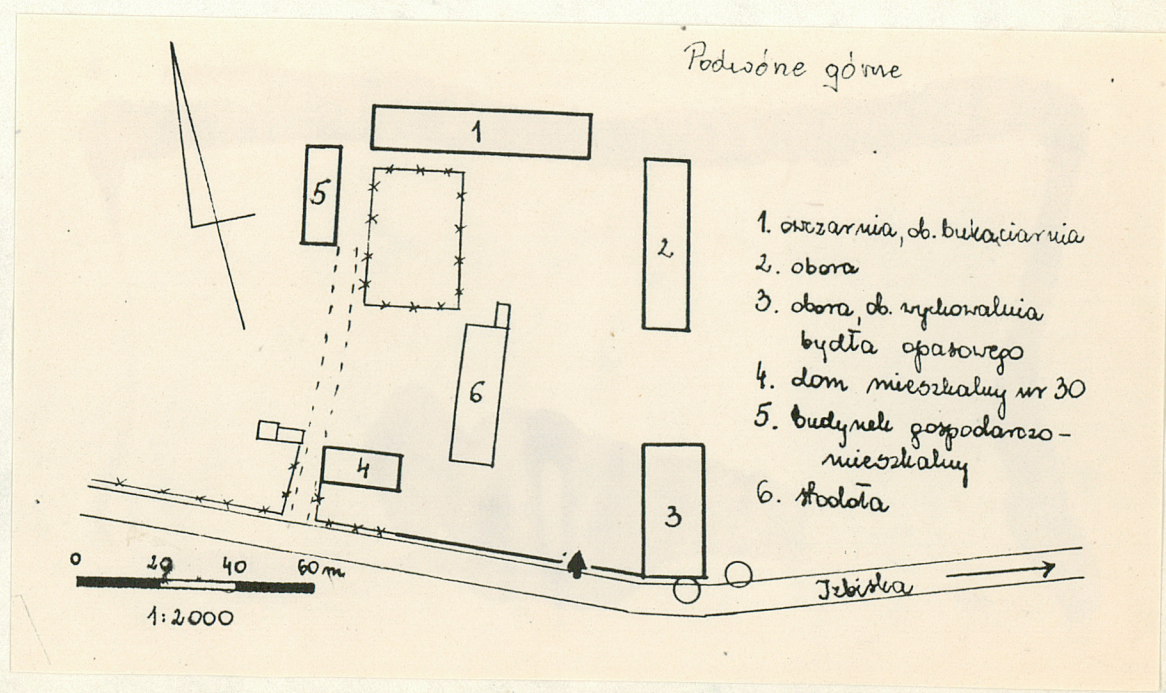 Podwórze górne
1
5
2
6
4
3
1. owczarnia, ob. bukaciarnia
2. obora
3. obora, ob. wychowalnia
bydła opasowego
4. dom mieszkalny nr 30
5. budynek gospodarczo-
mieszkalny
6. stodoła
0 20 40 60 m
1:2000
Izbiska